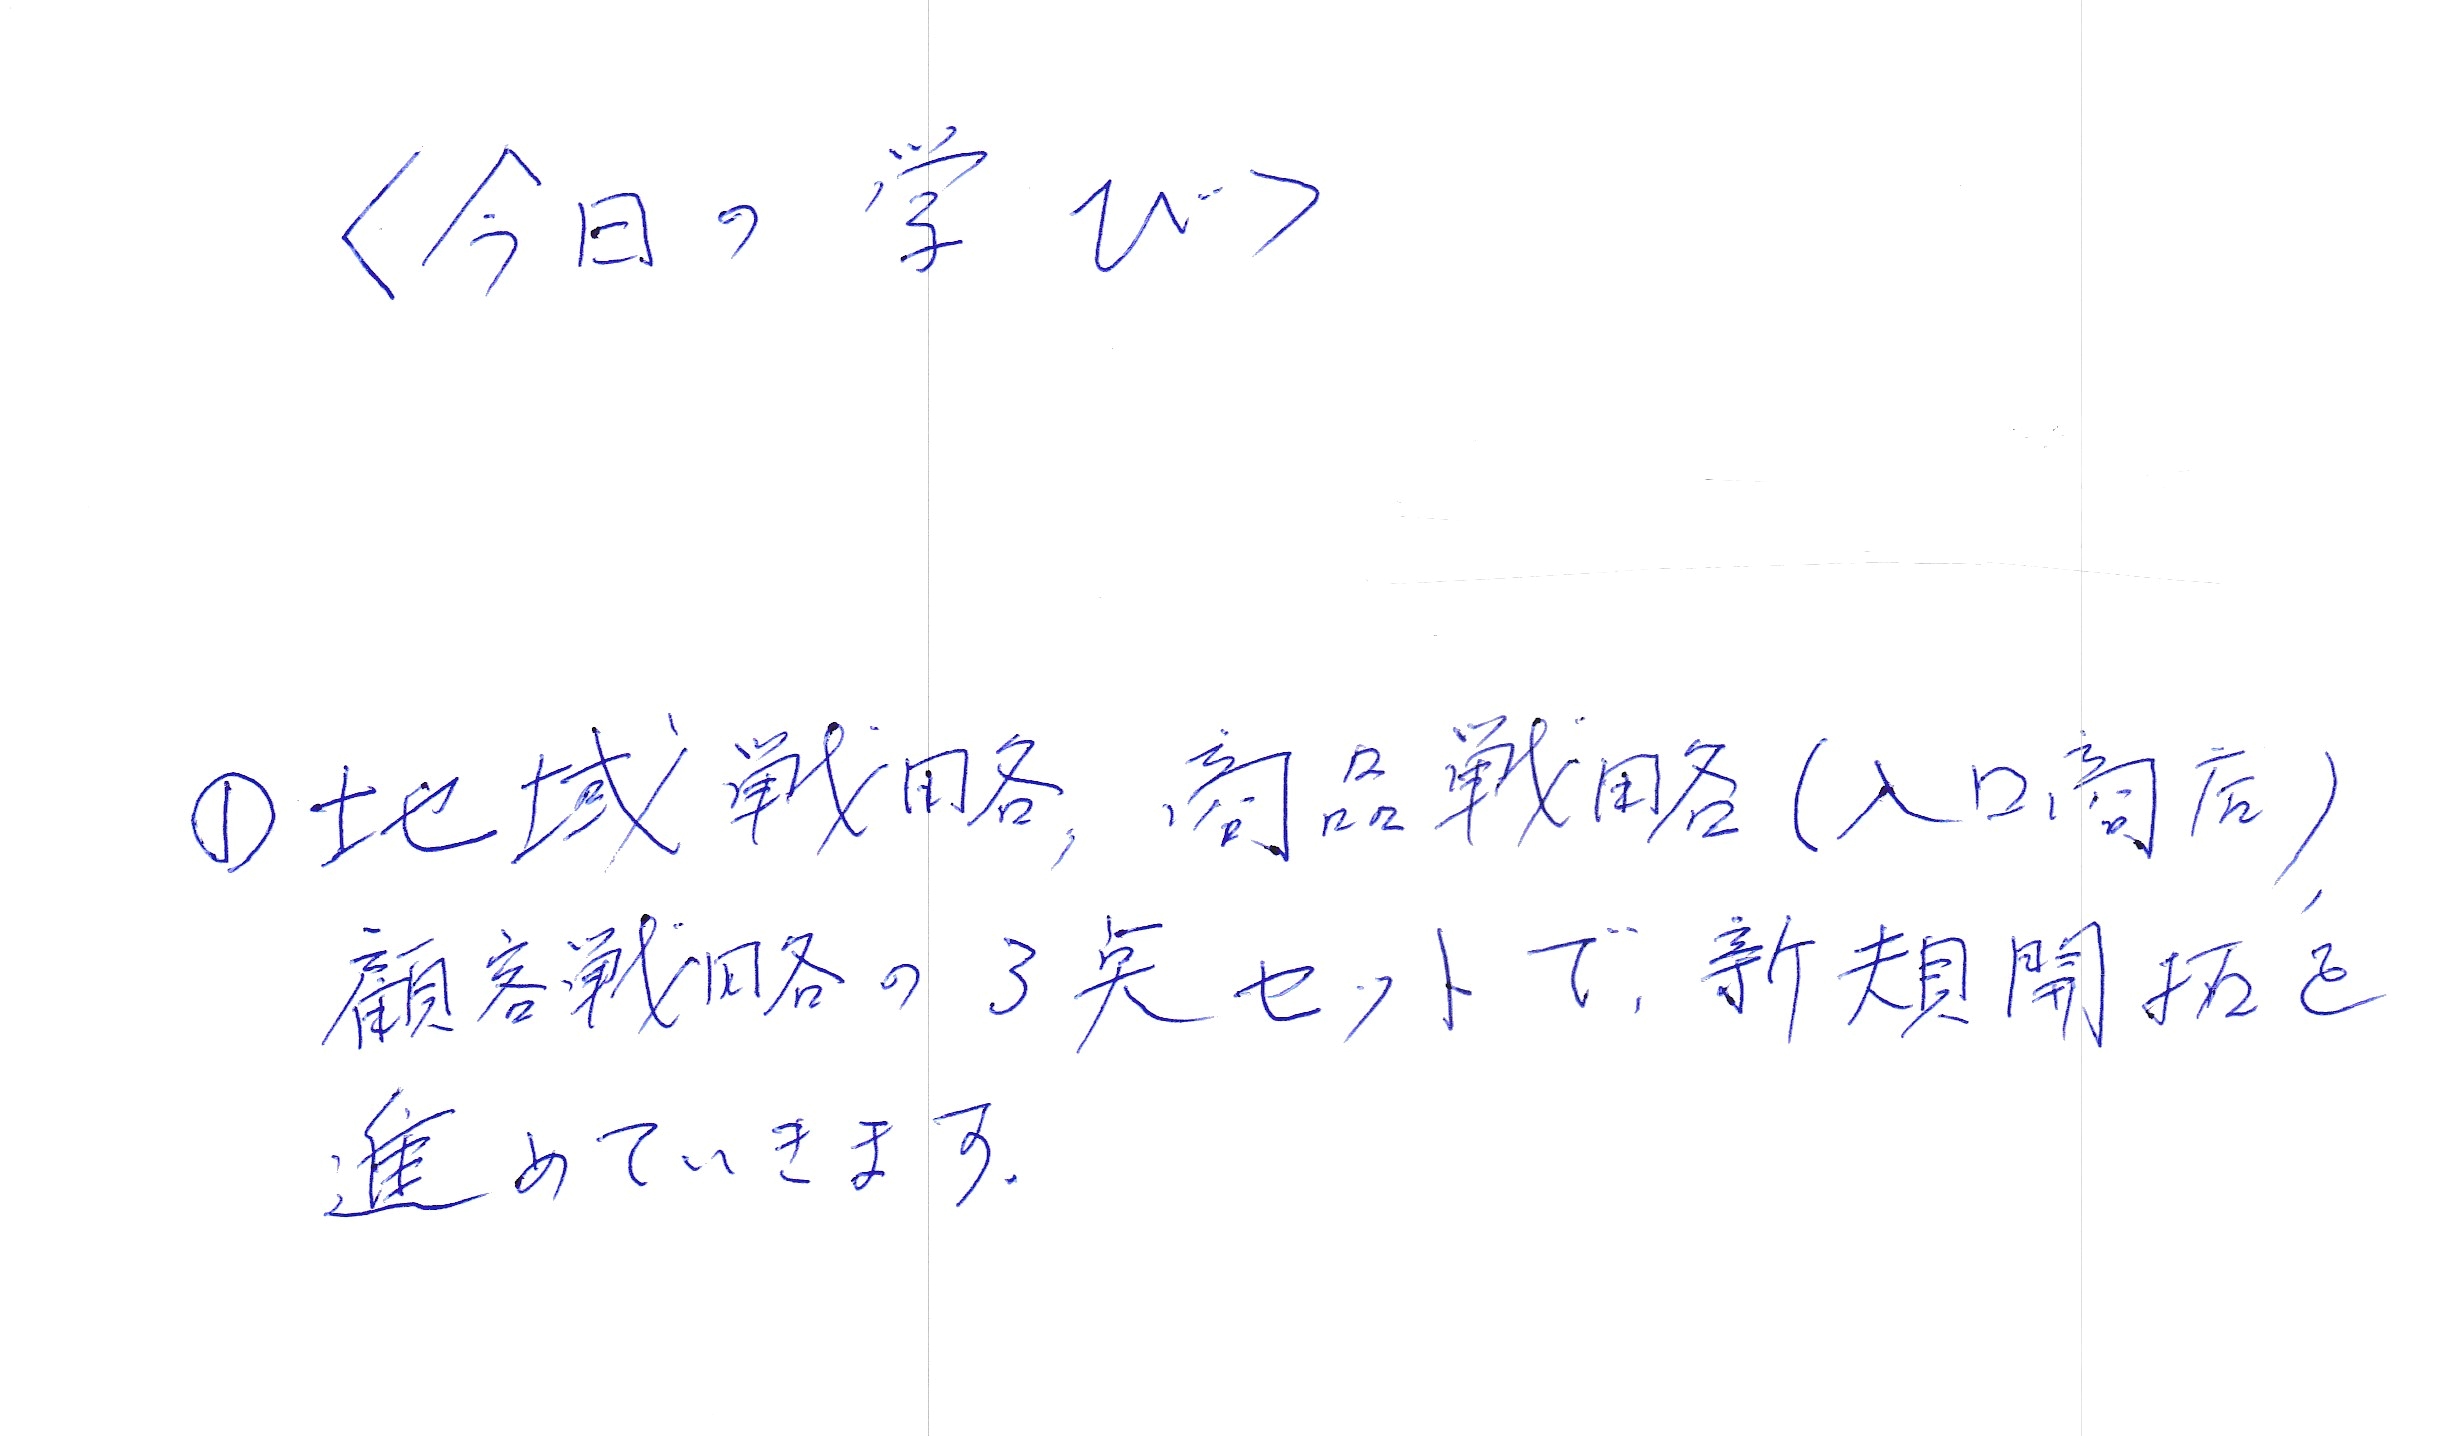 〈今日の学び〉
①地域戦略、商品戦略(入口商店)、
顧客戦略の3点セットで、新規開拓を
進めていきます。